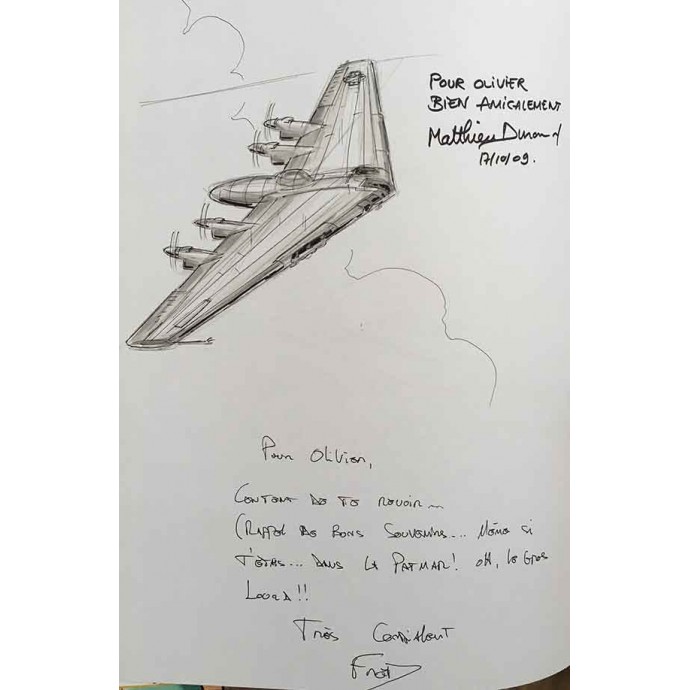 POUR OLIVIER
BIEN AMICALEMENT
Matthieu Durand
17/10/09.
Pour Olivier,
CONTENT DE TE REVOIR...
(RAPPEL DE BONS SOUVENIRS... MÊME SI
T'ÉTAIS... DANS LA PATMAR! OH, LE GROS
LOURD!!
TRÈS CORDIALEMENT
FRED